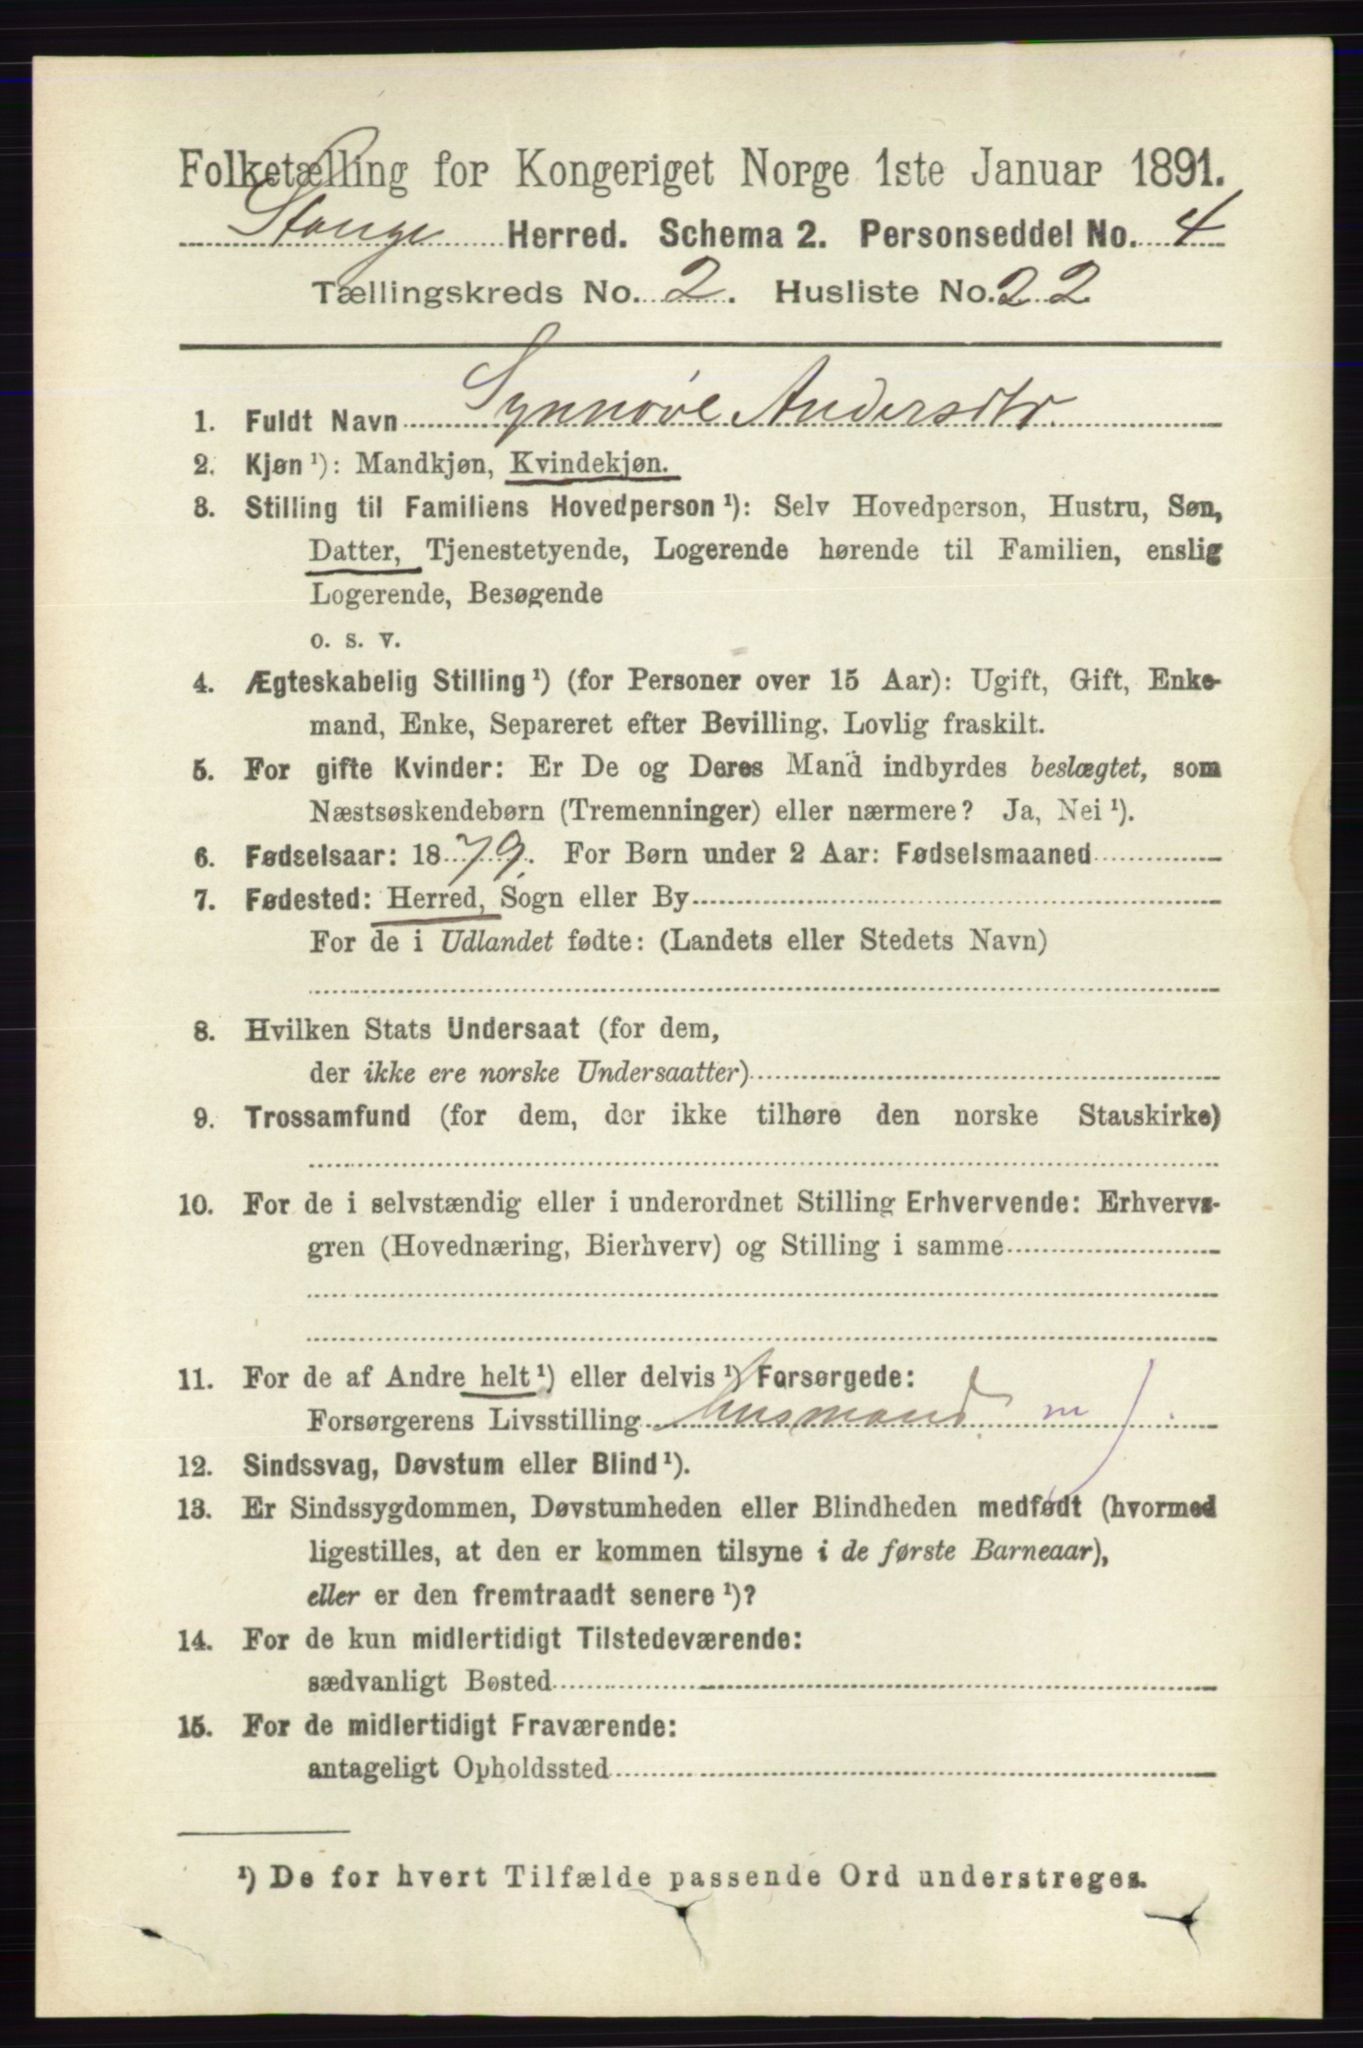 Folketælling for Kongeriget Norge 1ste Januar 1891.
Stange Herred. Schema 2. Personseddel No. 4
Tællingskreds No. 2. Husliste No. 22
1. Fuldt Navn Synnøve Andersdtr.
2. Kjøn ¹): Mandkjøn, Kvindekjøn.
3. Stilling til Familiens Hovedperson ¹): Selv Hovedperson, Hustru, Søn,
Datter, Tjenestetyende, Logerende hørende til Familien, enslig
Logerende, Besøgende
o. s. v.
4. Ægteskabelig Stilling ¹) (for Personer over 15 Aar): Ugift, Gift, Enke-
mand, Enke, Separeret efter Bevilling, Lovlig fraskilt.
5. For gifte Kvinder: Er De og Deres Mand indbyrdes beslægtet, som
Næstsøskendebørn (Tremenninger) eller nærmere? Ja, Nei ¹).
6. Fødselsaar: 1879. For Børn under 2 Aar: Fødselsmaaned
7. Fødested: Herred, Sogn eller By
For de i Udlandet fødte: (Landets eller Stedets Navn)
8. Hvilken Stats Undersaat (for dem,
der ikke ere norske Undersaatter)
9. Trossamfund (for dem, der ikke tilhøre den norske Statskirke)
10. For de i selvstændig eller i underordnet Stilling Erhvervende: Erhvervs-
gren (Hovednæring, Bierhverv) og Stilling i samme
11. For de af Andre helt ¹) eller delvis ¹) Forsørgede:
Forsørgerens Livsstilling husmand m
12. Sindssvag, Døvstum eller Blind ¹).
13. Er Sindssygdommen, Døvstumheden eller Blindheden medfødt (hvormed
ligestilles, at den er kommen tilsyne i de første Barneaar),
eller er den fremtraadt senere ¹)?
14. For de kun midlertidigt Tilstedeværende:
sædvanligt Bosted
15. For de midlertidigt Fraværende:
antageligt Opholdssted
¹) De for hvert Tilfælde passende Ord understreges.